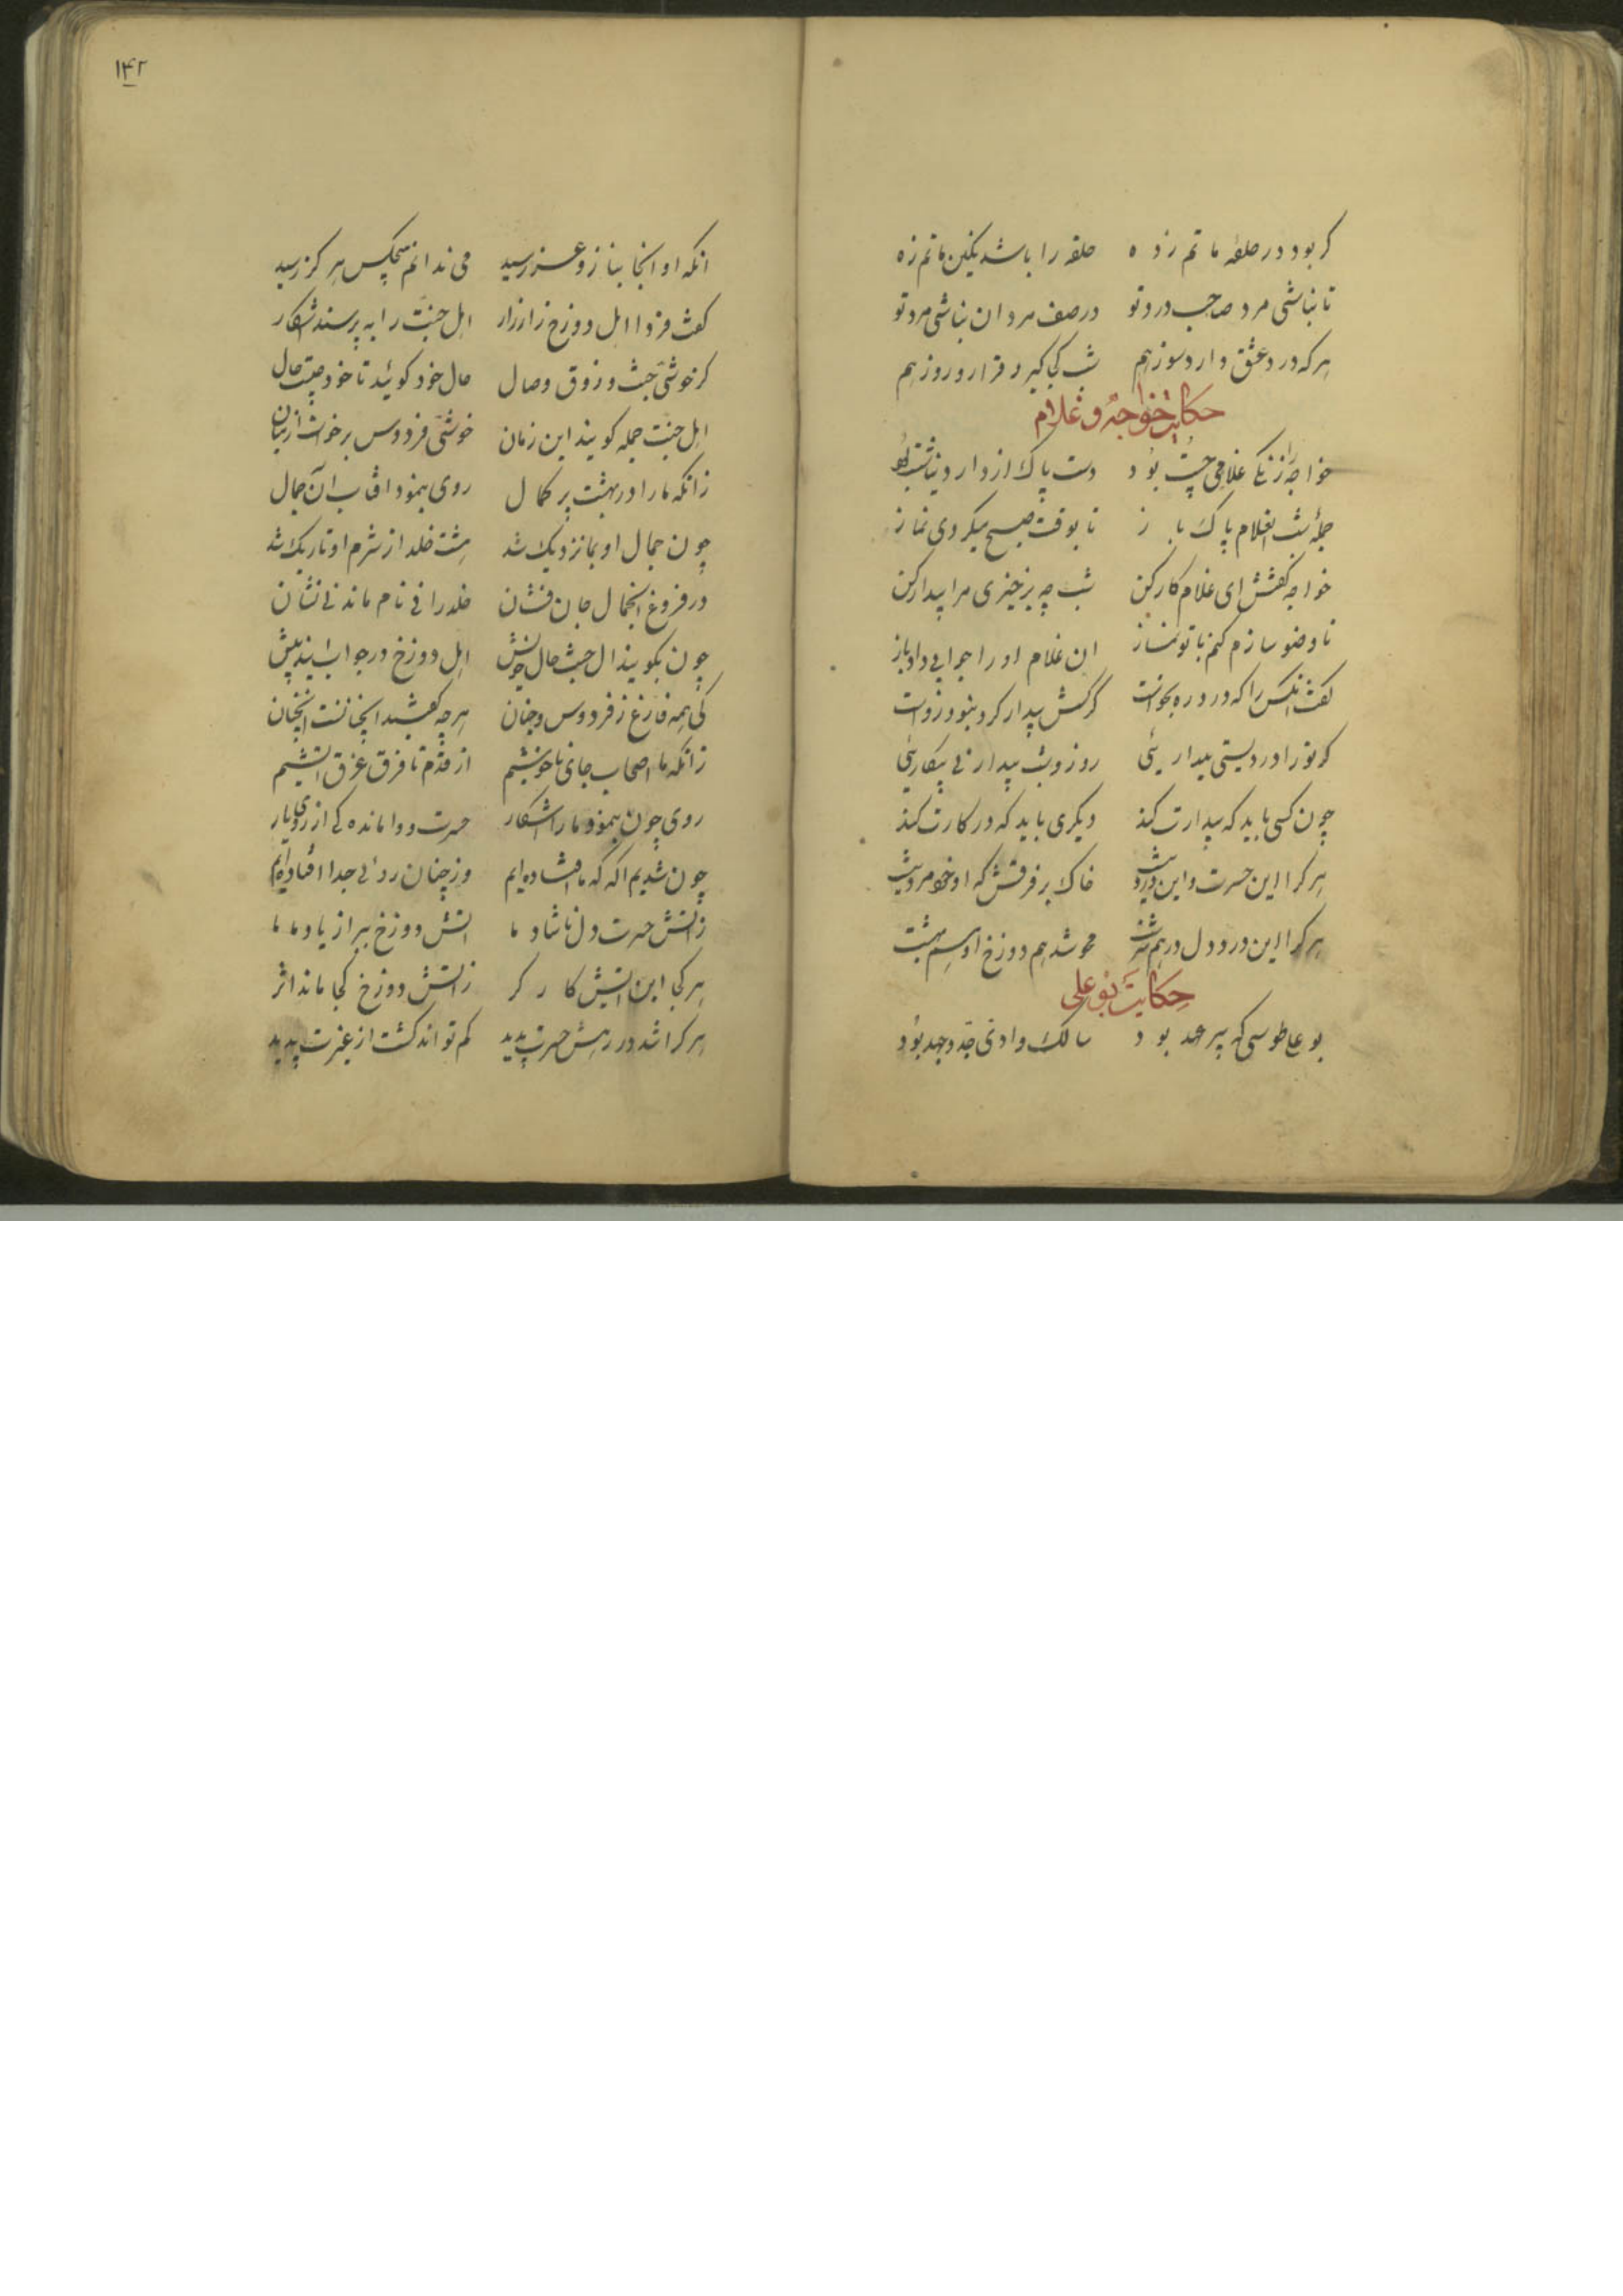 گر بود در حلقهٔ ماتم زده حلقه را باشد نگین ماتم زده
تا نباشی مرد صاحب درد تو در صف مردان نباشی مرد تو
هر که درد عشق دارد سوز هم شب کی گیرد قرار و روز هم
حکایت خواجه و غلام
خواجه را زنگی غلامی چست بود دست پاک از کار دنیا شست بود
جمله شب آن غلام پاک باز تا بوقت صبح میکردی نماز
خواجه گفتش ای غلام کارکن شب چو برخیزی مرا بیدار کن
تا وضو سازم کنم با تو نماز ان غلام او را جوابی داد باز
گفت انکس را که درد ره بخواست گر کسش بیدار کرد نبود رواست
گر تو را دردیستی بیداریئی روز و شب بیدار نی بیکاریئی
چون کسی باید که بیدارت کند دیگری باید که در کارت کند
هر کرا این حسرت و این درد نیست خاک بر فرقش که او خود مرد نیست
هر کرا این درد دل درهم سرشت محو شد هم دوزخ او هم بهشت
حکایت بوعلی
بوعلی طوسی که پیر عهد بود سالک وادی جد و جهد بود
۱۴۲
انکه او انجا بناز و عز رسید می ندانم هیچکس هرگز رسید
گفت فردا اهل دوزخ زار زار اهل جنت را به پرسند اشکار
کز خوشی جنت و ذوق وصال حال خود گوئید تا خود چیست حال
اهل جنت جمله گویند این زمان خوشی فردوس برخاست از میان
زانکه ما را در بهشت پر کمال روی بنمود افتاب آن جمال
چون جمال او بما نزدیک شد هشت خلد از شرم او تاریک شد
در فروغ انجمال جان فشان خلد را نی نام ماند نی نشان
چون بگویند اهل جنت حال خویش اهل دوزخ در جواب ایند پیش
کی همه فارغ ز فردوس و جنان هر چه گفتید انچنانست انچنان
زانکه ما اصحاب جای ناخوشیم از قدم تا فرق غرق اتشیم
روی چون بنمود ما را اشکار حسرت و وا ماندگی از روی یار
چون شدیم اگه که ما افتاده ایم وز چنان روئی جدا افتاده ایم
ز اتش حسرت دل ناشاد ما اتش دوزخ ببرد از یاد ما
هر کجا این اتش کارگر ز اتش دوزخ کجا ماند اثر
هر کرا شد در رهش حسرت پدید کم تواند گشت از غیرت پدید